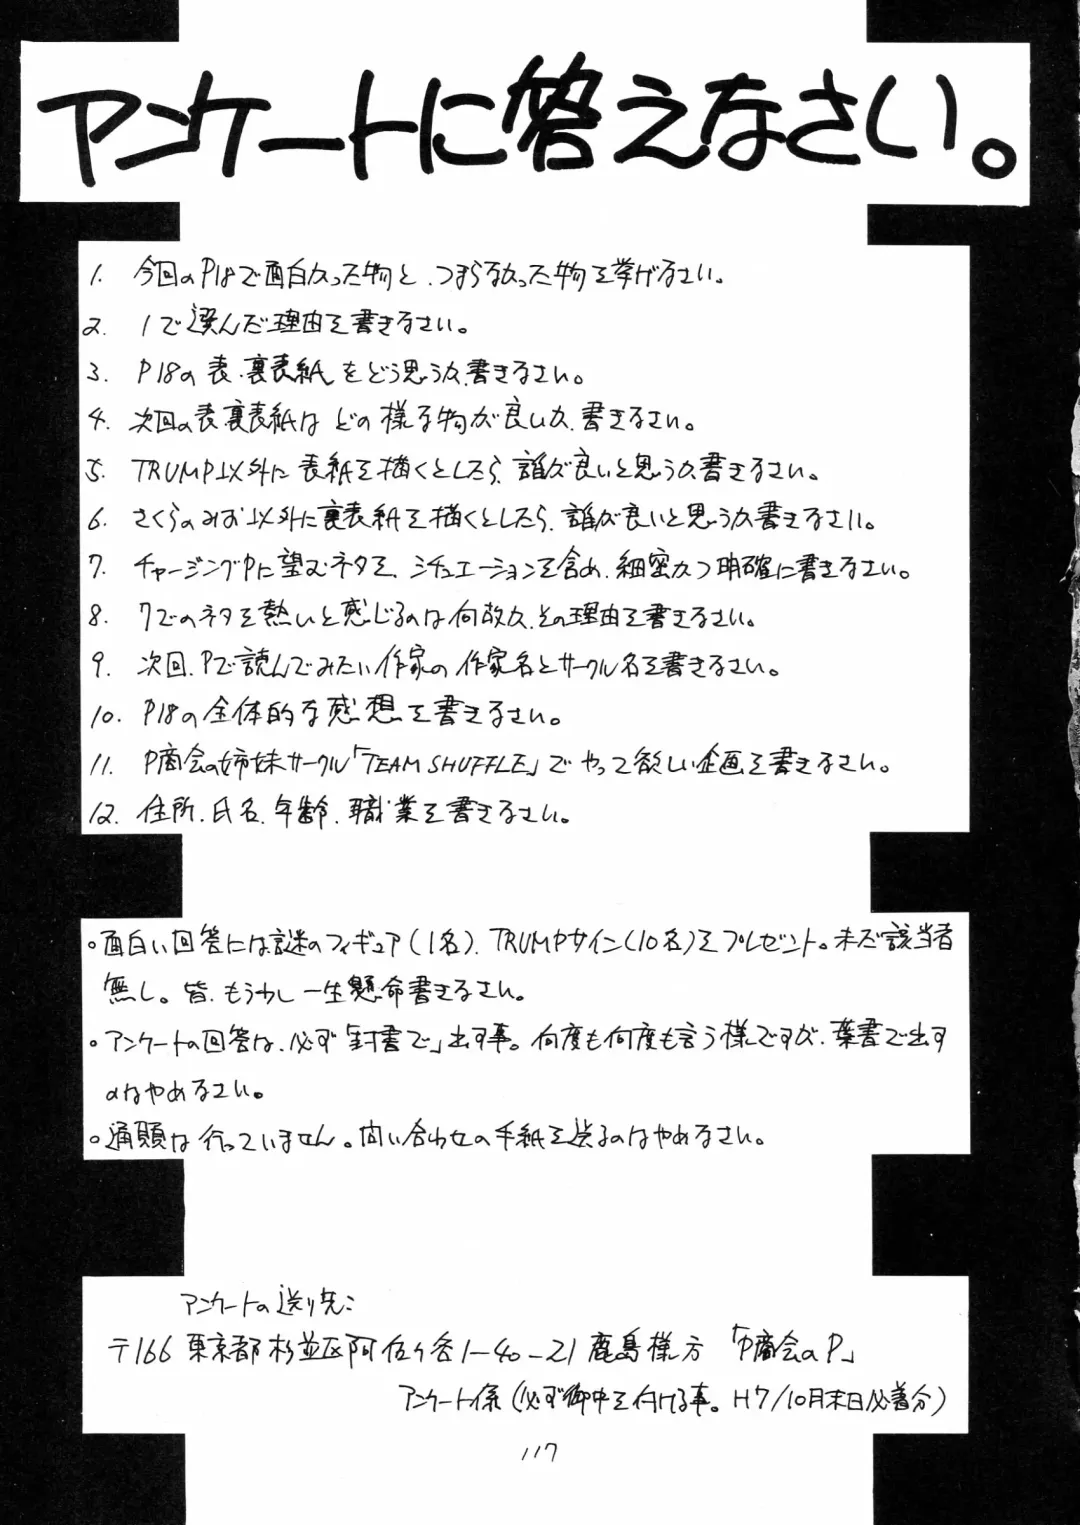 アンケートに答えなさい。
1. 今回のP18で面白かった物と、つまらなかった物を挙げなさい。
2. 1で選んだ理由を書きなさい。
3. P18の表、裏表紙をどう思うか、書きなさい。
4. 次回の表、裏表紙はどの様な物が良いか、書きなさい。
5. TRUMP以外に表紙を描くとしたら、誰が良いと思うか、書きなさい。
6. さくらのみお以外に裏表紙を描くとしたら、誰が良いと思うか書きなさい。
7. チャージングPに望むネタを、シチュエーションを含め、細密かつ明確に書きなさい。
8. 7でのネタを熱いと感じるのは何故か、その理由を書きなさい。
9. 次回、Pで読んでみたい作家の作家名とサークル名を書きなさい。
10. P18の全体的な感想を書きなさい。
11. P商会の姉妹サークル「TEAM SHUFFLE」でやって欲しい企画を書きなさい。
12. 住所、氏名、年齢、職業を書きなさい。
○面白い回答には謎のフィギュア(1名)、TRUMPサイン(10名)をプレゼント。未だ該当者
無し。皆、もう少し一生懸命書きなさい。
○アンケートの回答は、必ず「封書で」出す事。何度も何度も言う様ですが、葉書で出す
のはやめなさい。
○通頒は行っていません。問い合わせの手紙を送るのはやめなさい。
アンケートの送り先:
〒166 東京都杉並区阿佐ヶ谷1-40-21 鹿島様方 「P商会のP」
アンケート係(必ず御中を付ける事。H7/10月末日必着分)
117